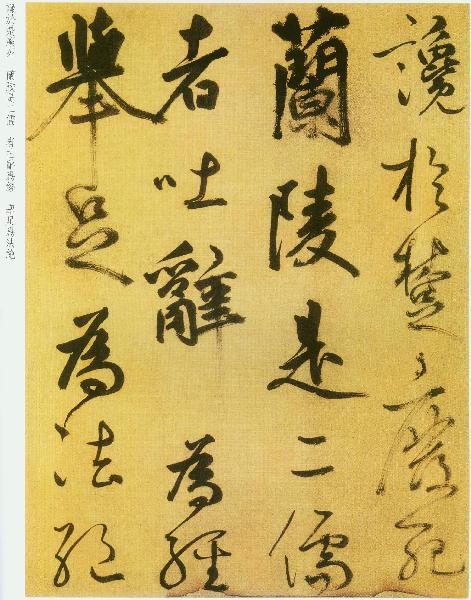 讒於楚廢死
蘭陵是二儒
者吐辭為經
舉足為法絕
讒於楚廢死 蘭陵是二儒 者吐辭為經 舉足為法絕